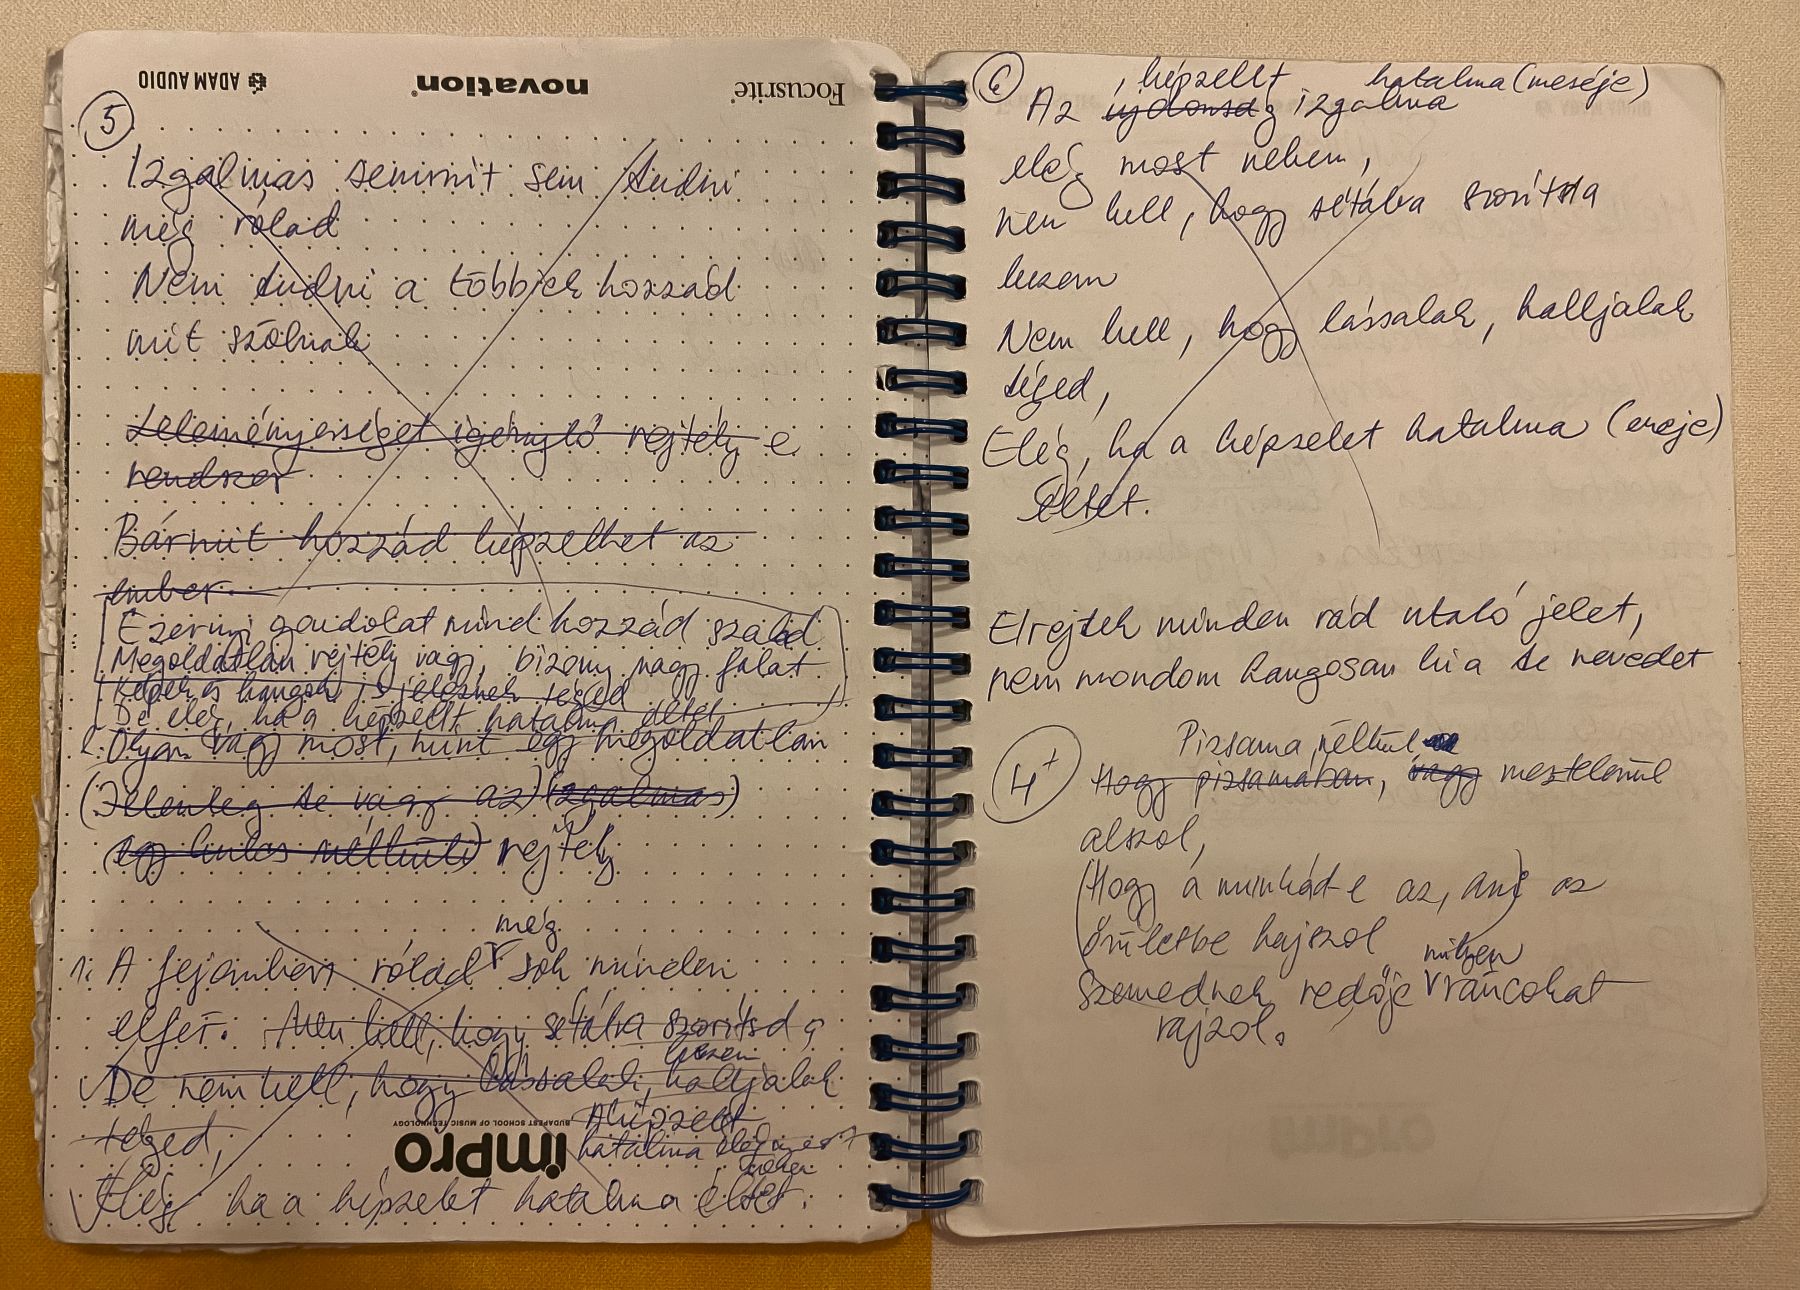 ADAM AUDIO
novation
Focusrite
5
Izgalmas semmit sem tudni
még rólad
Nem tudni a többiek hozzád
mit szólnak
Leleményességet igénylő rejtély e
rendszer
Bármit hozzád képzelhet az
ember
Ezernyi gondolat mind hozzád szalad
Megoldatlan rejtély vagy, bizony nagy falat
Képek és hangok jelelnek téged
De elég, ha a képzelt hatalma éltet
2. Olyan vagy most, mint egy megoldatlan
(Jelenleg te vagy az) (izgalmas)
(egy kulcs nélküli) rejtély
még
1. A fejemben rólad sok minden
elfér. Nem kell, hogy sétára szorítsd
kezem
De nem kell, hogy lássalak, halljalak
téged,
A képzelet
hatalma elég
nekem
Elég, ha a képzelet hatalma éltet.
impro
BUDAPEST SCHOOL OF MUSIC TECHNOLOGY
6
képzelt hatalma (meséje)
Az újdonság izgalma
elég most nekem,
nem kell, hogy sétálva szorítsa
kezem
Nem kell, hogy lássalak, halljalak
téged,
Elég, ha a képzelet hatalma (ereje)
éltet.
Elrejtek minden rád utaló jelet,
nem mondom hangosan ki a te nevedet
4+
Pizsama nélkül
Hogy pizsamában, vagy meztelenül
alszol,
(Hogy a munkád-e az, ami az
őrületbe hajszol)
miken
Szemednek redője ráncokat
rajzol.